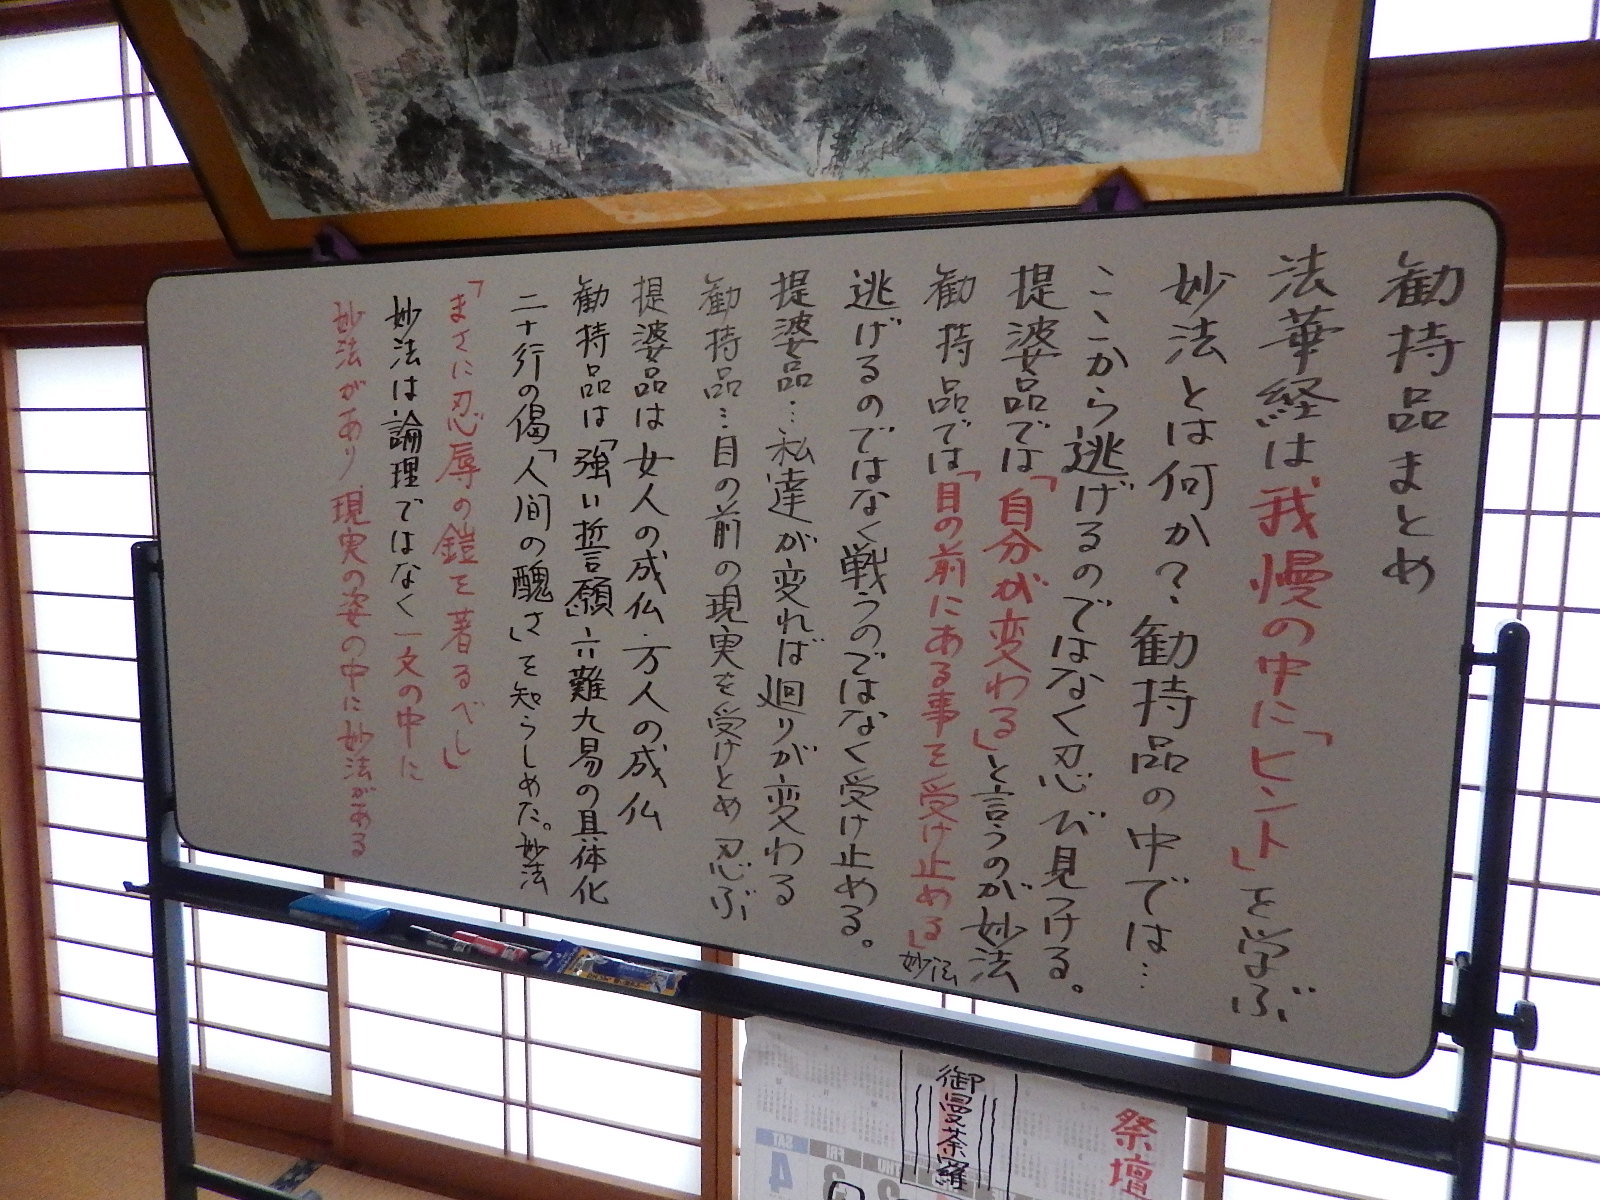 勧持品まとめ
法華経は我慢の中に「ヒント」を学ぶ
妙法とは何か?勧持品の中では…
ここから逃げるのではなく忍び見つける。
提婆品では「自分が変わる」と言うのが妙法
勧持品では「目の前にある事を受け止める」妙法
逃げるのではなく戦うのではなく受け止める。
提婆品…私達が変れば廻りが変わる
勧持品…目の前の現実を受けとめ忍ぶ
提婆品は女人の成仏・万人の成仏
勧持品は「強い誓願」六難九易の具体化
二十行の偈「人間の醜さ」を知らしめた。妙法
「まさに忍辱の鎧を著るべし」
妙法は論理ではなく一文の中に
妙法があり、現実の姿の中に妙法がある
祭壇
御曼荼羅
SAT
FRI
THU
4
3
2